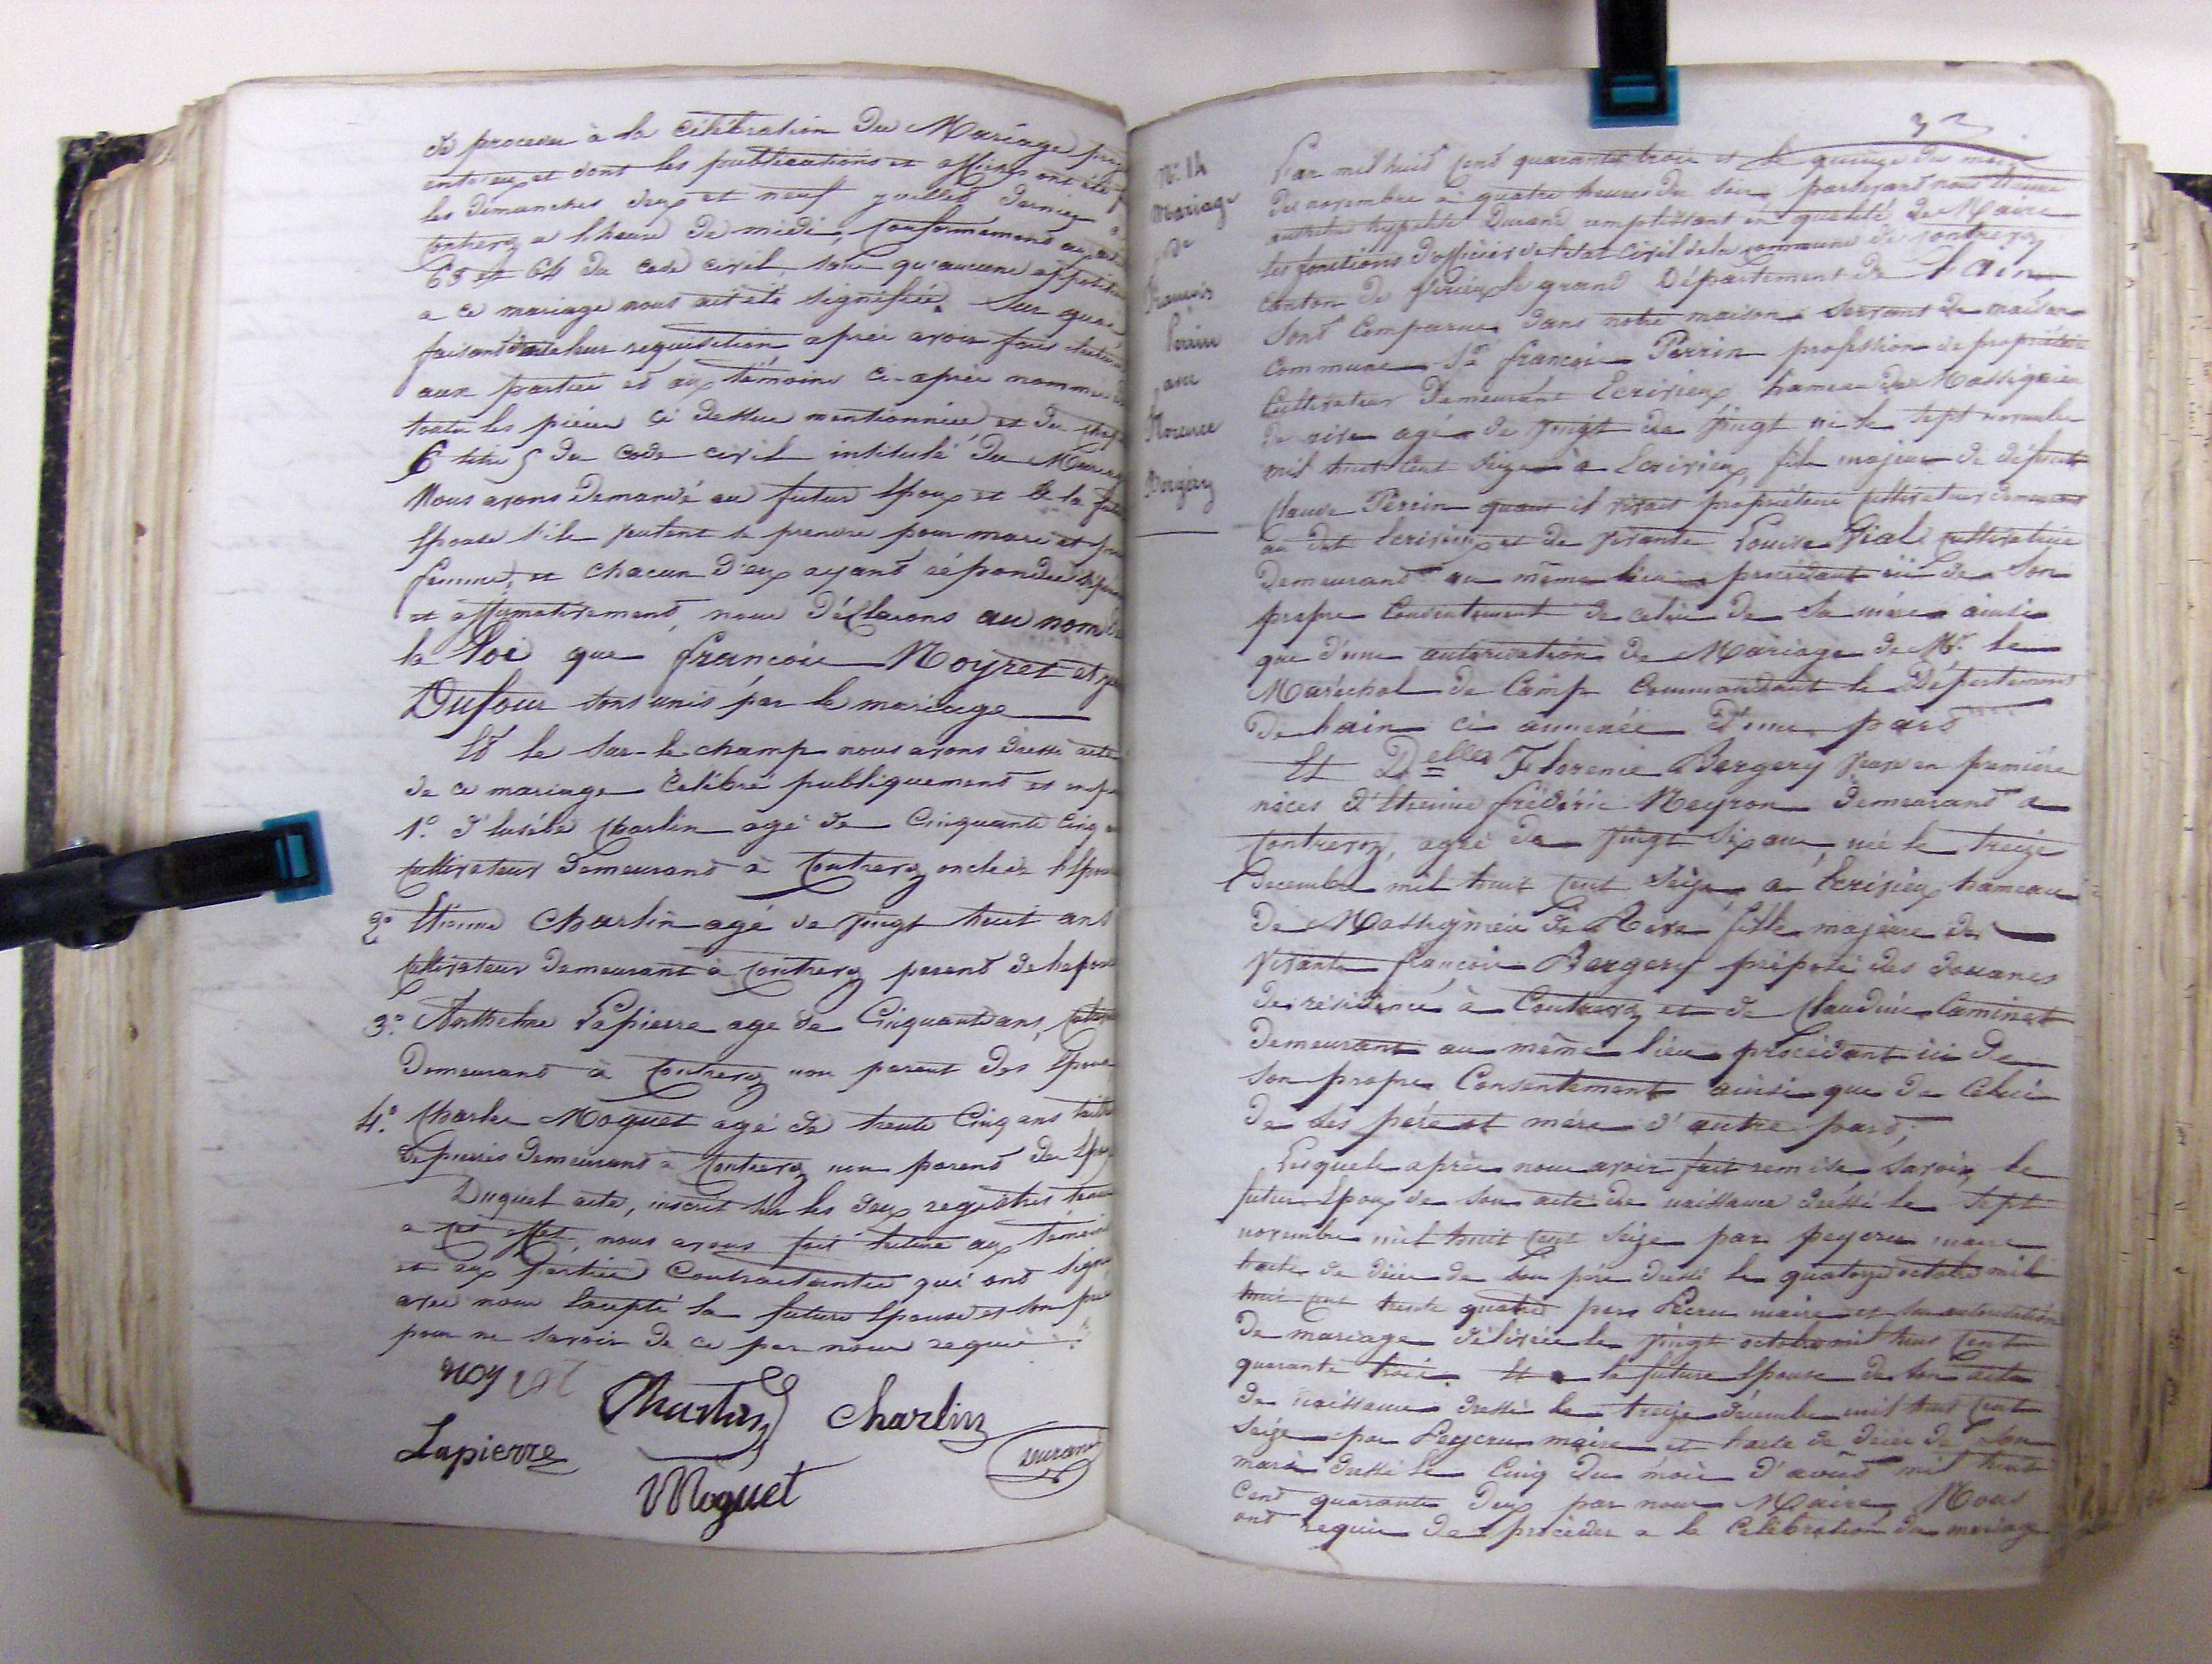 de proceder à la célébration du Mariage
entr'eux et dont les publications et affiches ont été
les dimanches deux et neuf juillet dernier
Contrevoz a l'heure de midi, conformément aux
63 et 64 du code civil, sans qu'aucune opposition
a ce mariage nous ait été signifiée. Sur quoi
faisant droit a leur requisition après avoir fait lecture
aux parties et aux témoins ci-après nommés
toutes les pièces ci dessus mentionnées et du
6 titre 5 du code civil intitulé du Mariage
Nous avons demandé au futur Epoux et à la future
Epouse s'ils veulent se prendre pour mari et pour
femme, et chacun d'eux ayant répondu
et affirmativement, nous déclarons au nom de
la Loi que françois Noyret et
Dufour sont unis par le mariage
Et le sur-le-champ nous avons dressé acte
de ce mariage célébré publiquement et en
1.º d'Eusèbe Charlin agé de Cinquante Cinq
cultivateur demeurant à Contrevoz oncle de l'Epouse
2º Etienne Charlin agé de vingt huit ans
cultivateur demeurant à Contrevoz parent de l'epouse
3.º Anthelme Lapierre age de Cinquante ans,
Demeurant à Contrevoz non parent des Epoux
4.º Charles Moquet agé de trente Cinq ans
de pierres demeurant à Contrevoz non parent des Epoux
Duquel acte, inscrit sur les deux registres
a cet effet, nous avons fait lecture aux témoins
et aux parties Contractantes qui ont signé
avec nous Excepté la future Epouse et son père
pour ne savoir de ce par nous requis.
noyret
Charlin Charlin
Lapierre Durand
Moquet
32
Nº. 14
Mariage
de
François
Perrin
avec
Florence
Bergery
L'an mil huit Cent quarante trois et le quinze du mois
de novembre à quatre heures du soir, pardevant nous
anthelme hypolite Durand remplissant en qualité de Maire
les fonctions d'officier de l'Etat Civil de la commune de Contrevoz
canton de virieux le grand Département de l'ain
Sont Comparus dans notre maison servant de maison
Commune Sr françois Perrin profession de propriétaire
Cultivateur Demeurant Ecrivieux hameau de Massignieu
de rive agé de vingt né le sept novembre
mil huit Cent Seize à Ecrivieux, fils majeur de défunt
Claude Perrin quand il vivait propriétaire cultivateur demeurant
au dit Ecrivieux et de vivante Louise Vial cultivatrice
Demeurant au même lieu procédant ici de son
propre Consentement de celui de sa mère ainsi
que d'une autorisation de Mariage de Mr. le
Maréchal de Camp Commandant le Département
de l'ain ci annexée d'une part
Et Delle Florence Bergery veuve en première
noces d'Etienne frédéric Neyron demeurant a
Contrevoz, agée de vingt six ans, née le treize
Decembre mil huit Cent Seize, a Ecrivieux hameau
de Massignieu de Rive fille majeure de
vivante françois Bergery préposé des douanes
de résidence à Contrevoz et de Claudine Caminet
Demeurant au même lieu procédant ici de
son propre Consentement ainsi que de Celui
de ses père et mère d'autre part,
Lesquels après nous avoir fait remise savoir le
futur Epoux de son acte de naissance dressé le sept
novembre mil huit Cent Seize par peycru maire
l'acte de décès de son père dressé le quatorze octobre mil
huit cent trente quatre par Peicru maire et son autorisation
De mariage délivrée le vingt octobre mil huit Cent
quarante trois. Et la future Epouse de son acte
de naissance dressé le treize décembre mil huit Cent
Seize par Peycru maire et l'acte de décès de son
mari dressé le Cinq du mois d'août mil huit
Cent quarante Deux par nous Maire, Nous
ont requis de procéder a la Célébration du mariage